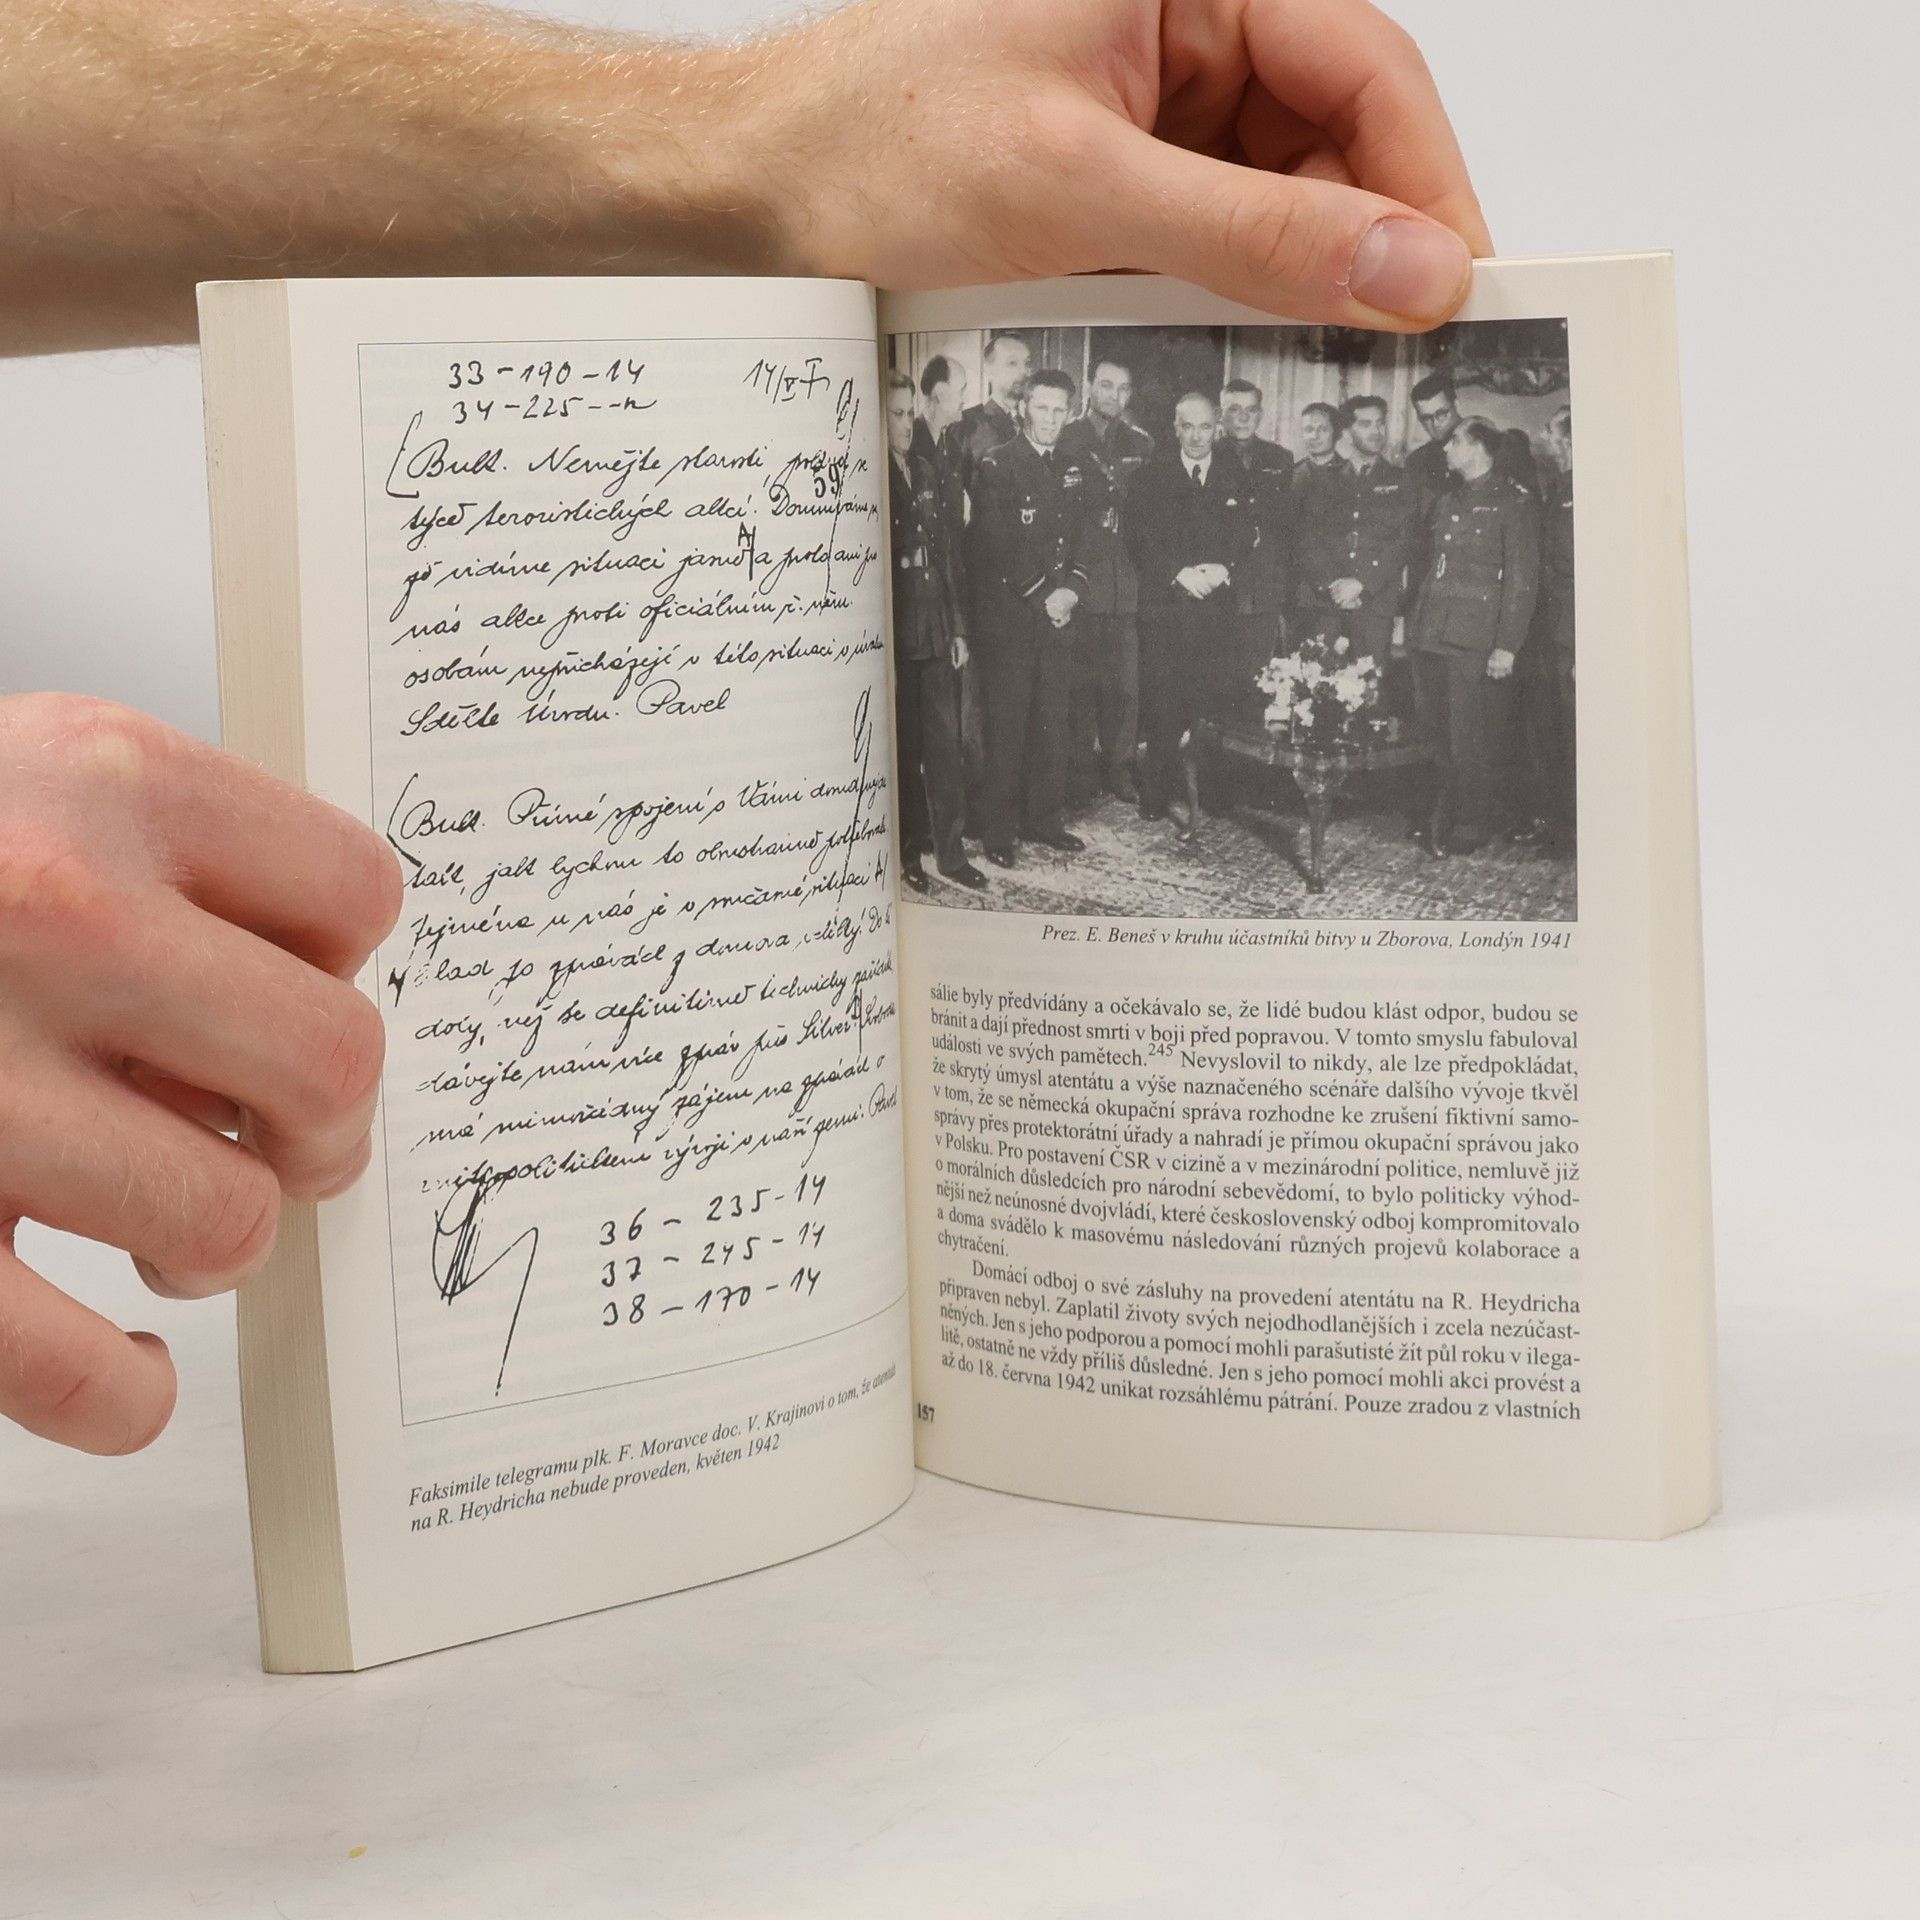 33 - 190 - 14
14/V
34 - 225 -
Bukl. Nemějte starosti,
59
teroristických akcí.
A
vidíme situaci jasně a proto
nás akce proti oficiálním
osobám nepřicházejí v této situaci v
Sdělte Úvodu. Pavel
Bukl. Přímé spojení s Vámi
tak, jak bychom to potřebovali
Zejména u nás je v situaci
zprávách z domova
doby, než se definitivně technicky
nám více zpráv
má mimořádný zájem na zprávách o
vývoji v naší zemi. Pavel
36 - 235 - 14
37 - 245 - 14
38 - 170 - 14
Faksimile telegramu plk. F. Moravce doc. V. Krajinovi o tom, že atentát
na R. Heydricha nebude proveden, květen 1942
Prez. E. Beneš v kruhu účastníků bitvy u Zborova, Londýn 1941
sálie byly předvídány a očekávalo se, že lidé budou klást odpor, budou se
bránit a dají přednost smrti v boji před popravou. V tomto smyslu fabuloval
události ve svých pamětech.245 Nevyslovil to nikdy, ale lze předpokládat,
že skrytý úmysl atentátu a výše naznačeného scénáře dalšího vývoje tkvěl
v tom, že se německá okupační správa rozhodne ke zrušení fiktivní samo-
správy přes protektorátní úřady a nahradí je přímou okupační správou jako
v Polsku. Pro postavení ČSR v cizině a v mezinárodní politice, nemluvě již
o morálních důsledcích pro národní sebevědomí, to bylo politicky výhod-
nější než neúnosné dvojvládí, které československý odboj kompromitovalo
a doma svádělo k masovému následování různých projevů kolaborace a
chytračení.
Domácí odboj o své zásluhy na provedení atentátu na R. Heydricha
připraven nebyl. Zaplatil životy svých nejodhodlanějších i zcela nezúčast-
něných. Jen s jeho podporou a pomocí mohli parašutisté žít půl roku v ilega-
litě, ostatně ne vždy příliš důsledné. Jen s jeho pomocí mohli akci provést a
až do 18. června 1942 unikat rozsáhlému pátrání. Pouze zradou z vlastních
157